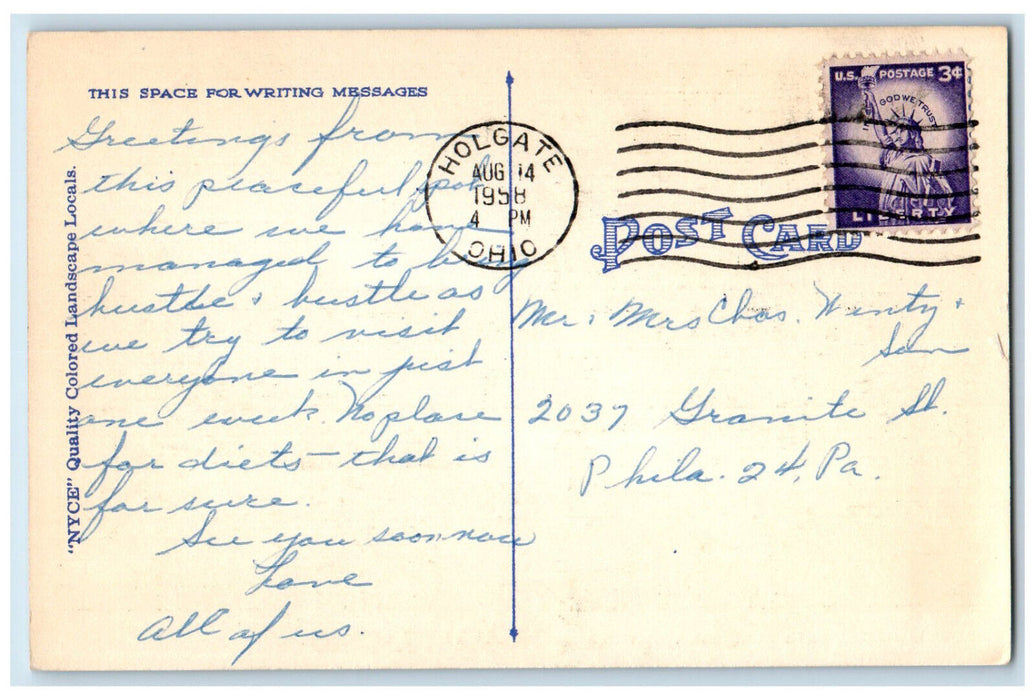 THIS SPACE FOR WRITING MESSAGES
Greetings from
this peaceful spot
where we have
managed to be
hustle & bustle as
we try to visit
everyone in just
one week. No place
for diets - that is
for sure.
See you soon now
Love
All of us.
"NYCE" Quality Colored Landscape Locals.
HOLGATE
AUG 14
1958
4 PM
OHIO
U.S. POSTAGE 3¢
IN GOD WE TRUST
LIBERTY
POST CARD
Mr. & Mrs Chas. &
Son
2037 Granite St.
Phila. 24, Pa.